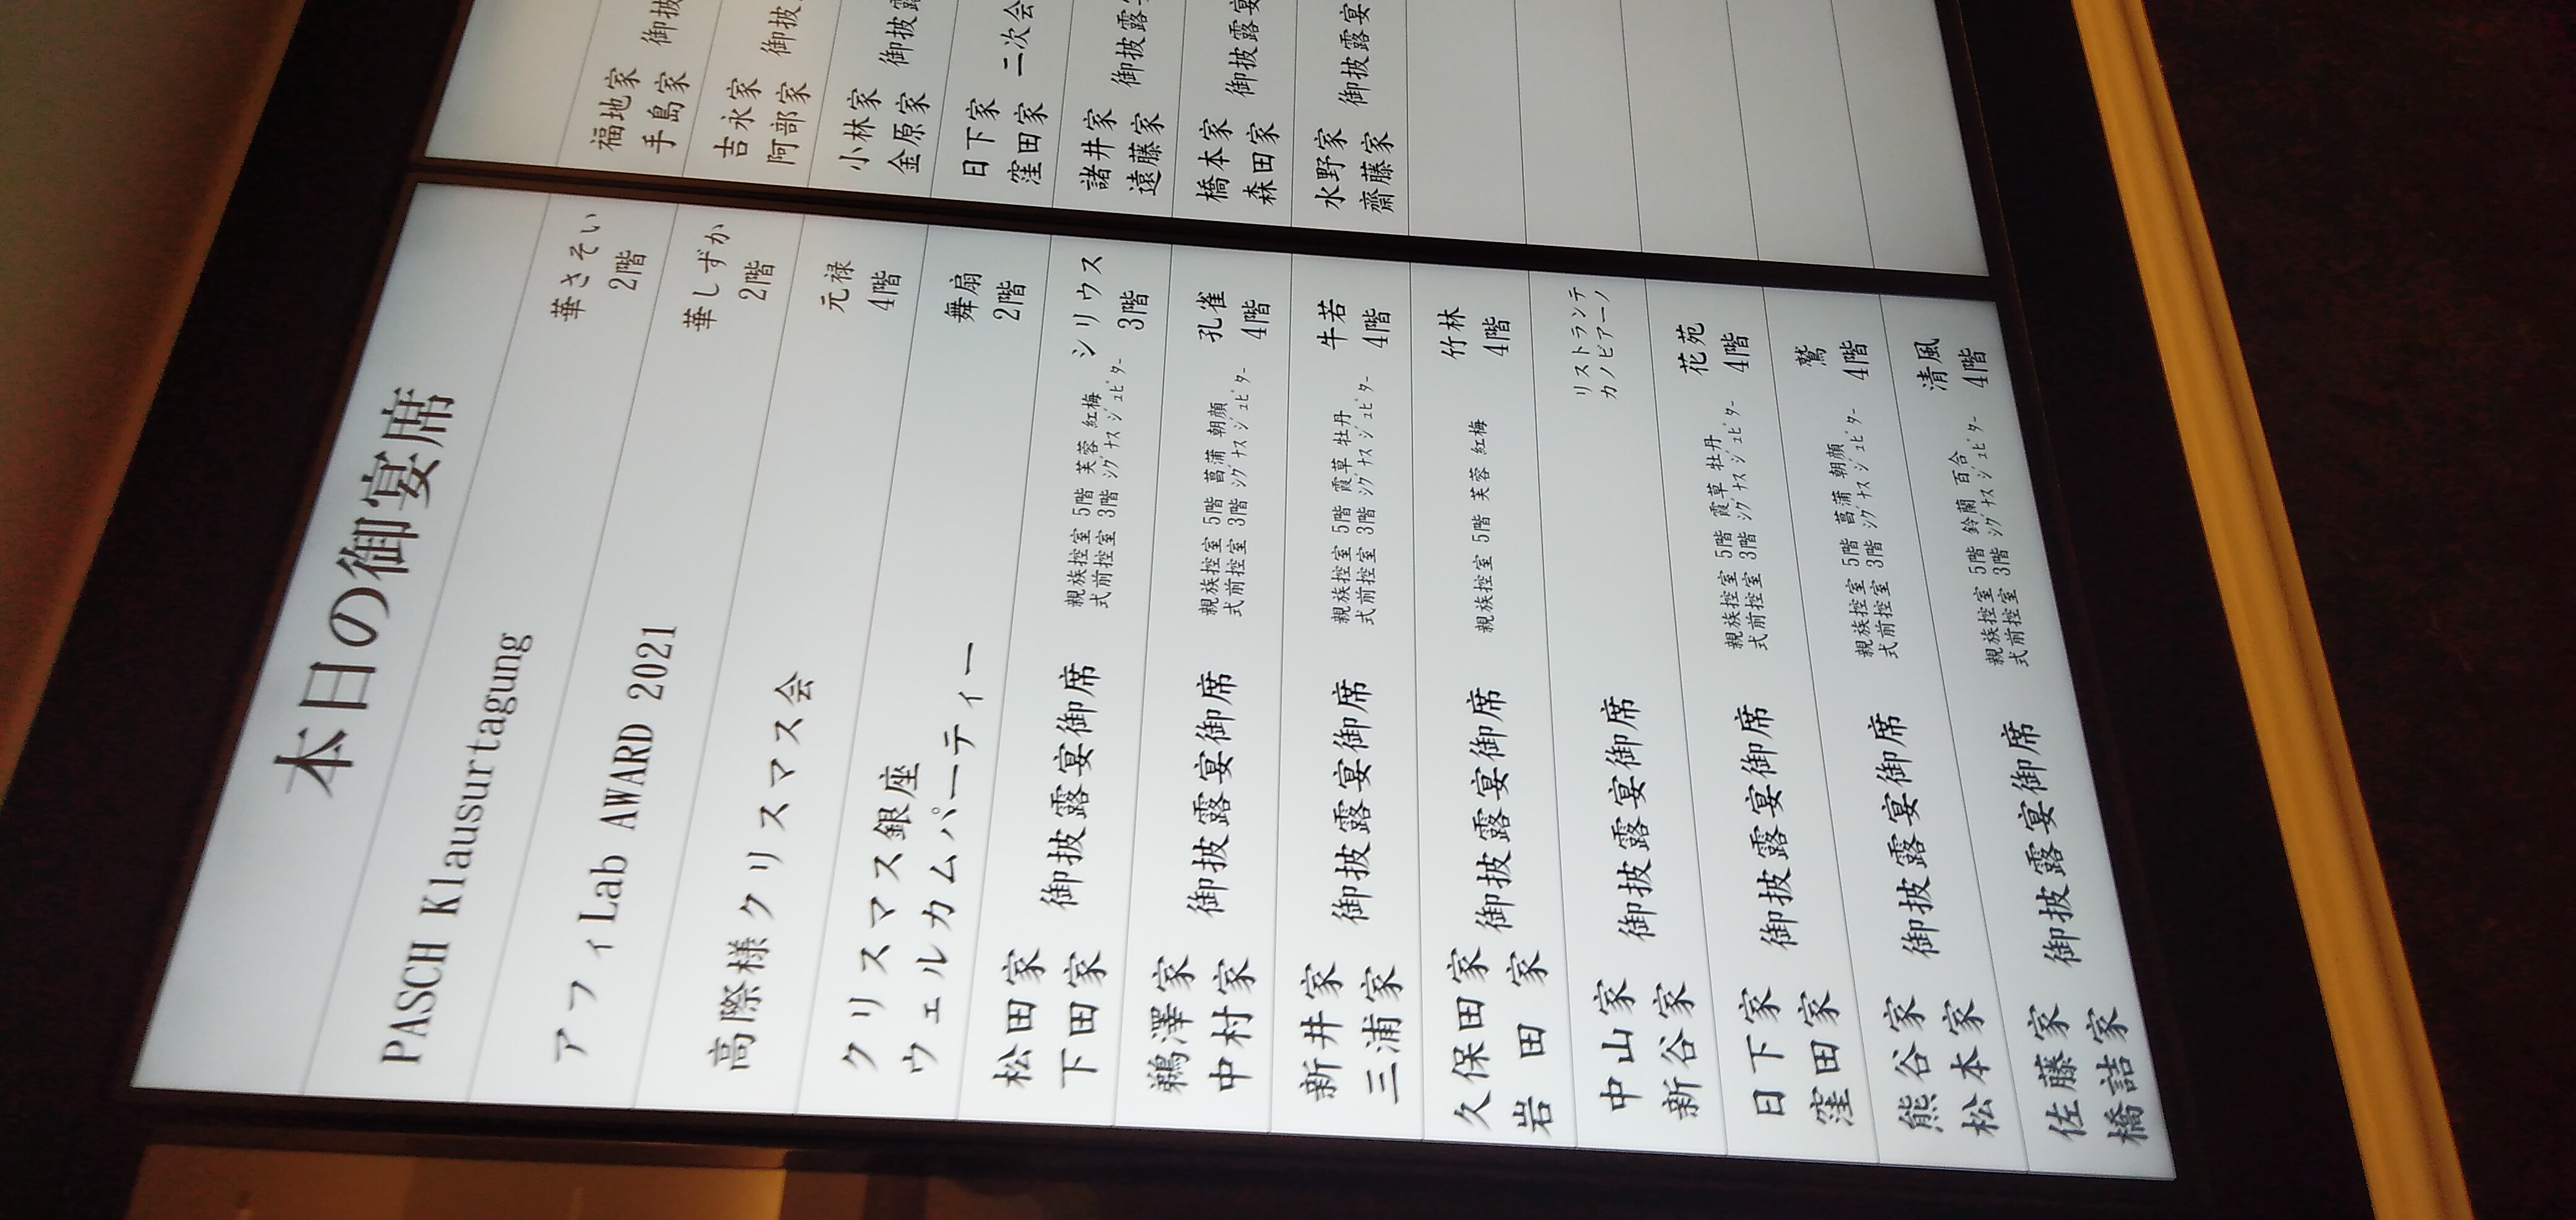 本日の御宴席
PASCH Klausurtagung
華さそい
2階
アフィLab AWARD 2021
華しずか
2階
高際様クリスマス会
元禄
4階
クリスマス銀座
ウェルカムパーティー
舞扇
2階
松田家
下田家
御披露宴御席
親族控室 5階 芙蓉 紅梅
式前控室 3階 シグナスジュピター
シリウス
3階
鵜澤家
中村家
御披露宴御席
親族控室 5階 菖蒲 朝顔
式前控室 3階 シグナスジュピター
孔雀
4階
新井家
三浦家
御披露宴御席
親族控室 5階 霞草 牡丹
式前控室 3階 シグナスジュピター
牛若
4階
久保田家
岩田家
御披露宴御席
親族控室 5階 芙蓉 紅梅
竹林
4階
中山家
新谷家
御披露宴御席
リストランテ
カノビアーノ
日下家
窪田家
御披露宴御席
親族控室 5階 霞草 牡丹
式前控室 3階 シグナスジュピター
花苑
4階
熊谷家
松本家
御披露宴御席
親族控室 5階 菖蒲 朝顔
式前控室 3階 シグナスジュピター
鷲
4階
佐藤家
橋詰家
御披露宴御席
親族控室 5階 鈴蘭 百合
式前控室 3階 シグナスジュピター
清風
4階
福地家
手島家
御披
吉永家
阿部家
御披
小林家
金原家
御披露
日下家
窪田家
二次会
諸井家
遠藤家
御披露宴
橋本家
森田家
御披露宴
水野家
齋藤家
御披露宴